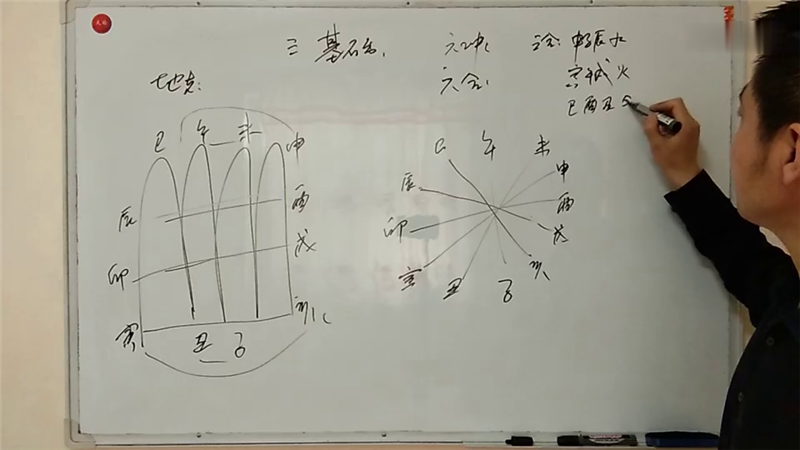 三 基础 六冲 三合: 申子辰水
地支: 六合: 寅午戌火
巳酉丑
巳 午 未 申
辰 酉
卯 戌
寅 丑 子 亥
巳 午 未
申
辰 酉
卯 戌
寅 丑 子 亥